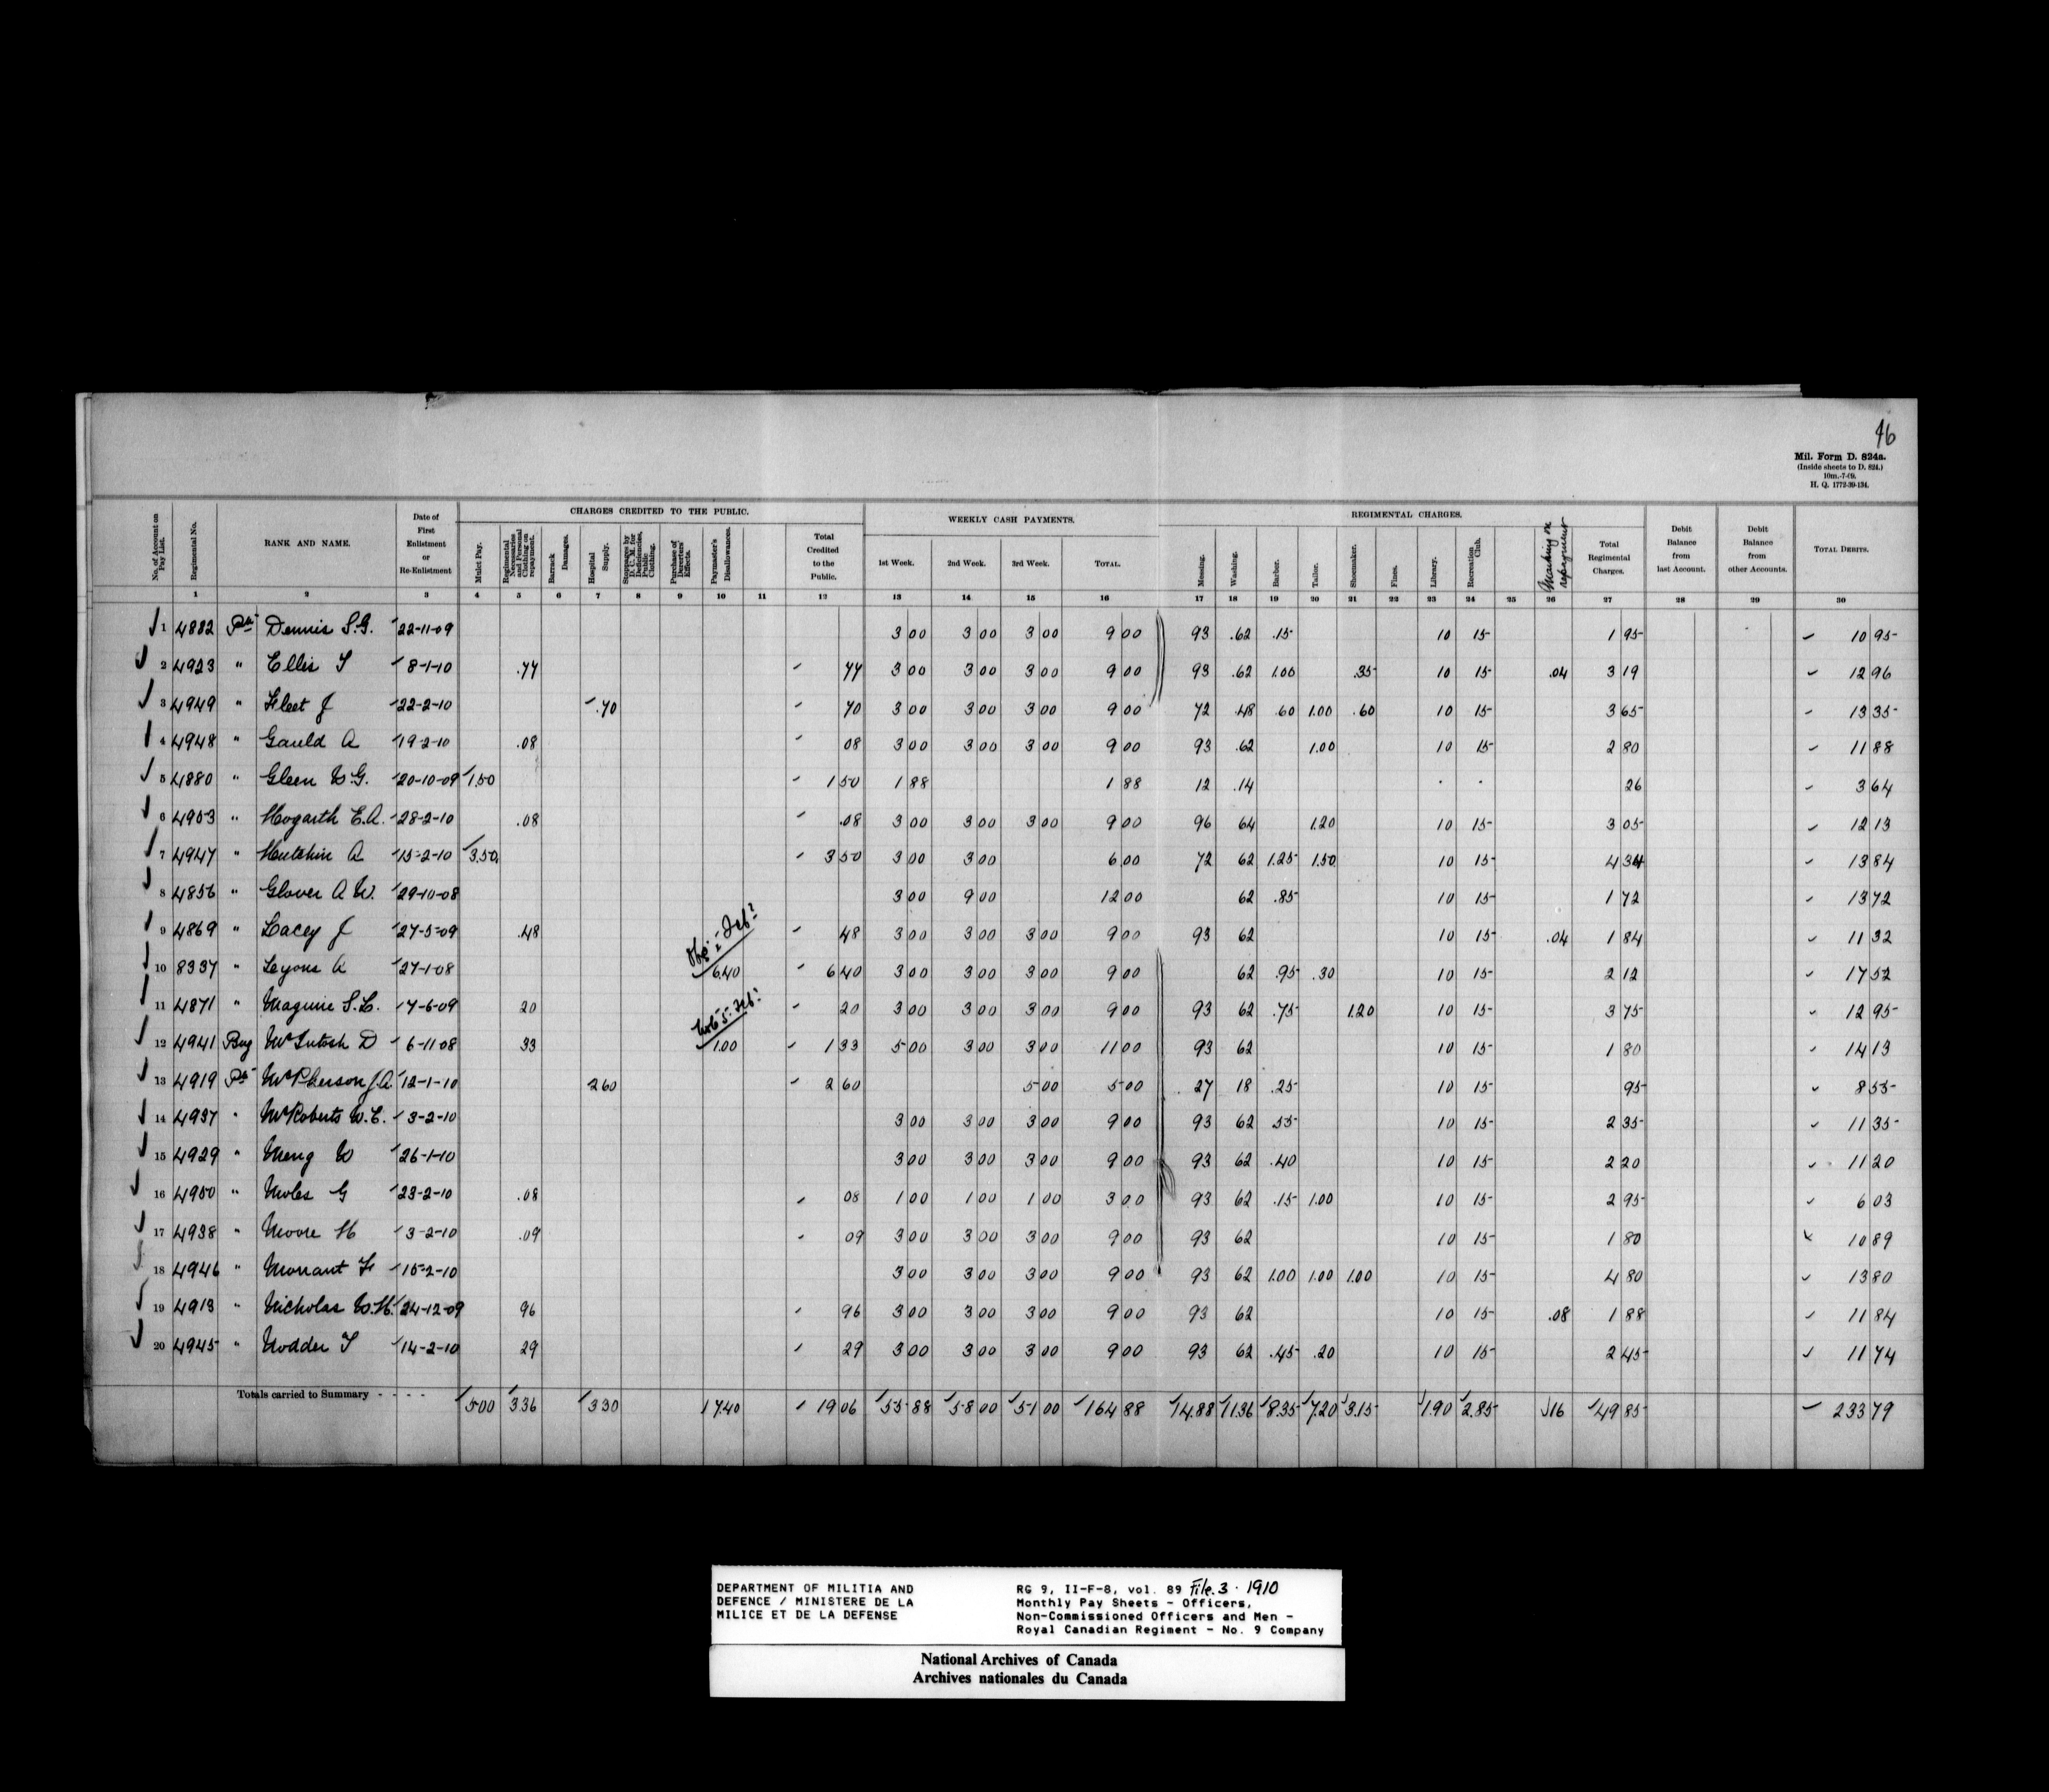 46
Mil. Form D. 824a.
(Inside sheets to D. 824.)
10m.-7-09.
H. Q. 1772-39-134.
CHARGES CREDITED TO THE PUBLIC. WEEKLY CASH PAYMENTS. REGIMENTAL CHARGES.
No. of Account on Pay List. Regimental No. RANK AND NAME. Date of First Enlistment or Re-Enlistment Mulct Pay. Regimental Necessaries and Personal Clothing on repayment. Barrack Damages. Hospital Supply. Stoppages by D. C. M. for Deficiencies, Public Clothing. Purchase of Deserters' Effects. Paymaster's Disallowances. Total Credited to the Public. 1st Week. 2nd Week. 3rd Week. TOTAL. Messing. Washing. Barber. Tailor. Shoemaker. Fines. Library. Recreation Club. Marking on repayment Total Regimental Charges. Debit Balance from last Account. Debit Balance from other Accounts. TOTAL DEBITS.
1 2 3 4 5 6 7 8 9 10 11 12 13 14 15 16 17 18 19 20 21 22 23 24 25 26 27 28 29 30
1 4882 Pte Dennis S.G. 22-11-09 3 00 3 00 3 00 9 00 93 .62 .15 10 15 1 95 10 95
2 4923 " Ellis T 8-1-10 .77 77 3 00 3 00 3 00 9 00 93 .62 1.00 .35 10 15 .04 3 19 12 96
3 4949 " Fleet J 22-2-10 .70 70 3 00 3 00 3 00 9 00 72 .48 .60 1.00 .60 10 15 3 65 13 35
4 4948 " Gauld A 19-2-10 .08 08 3 00 3 00 3 00 9 00 93 .62 1.00 10 15 2 80 11 88
5 4880 " Gleen W.G. 20-10-09 1.50 1 50 1 88 1 88 12 .14 26 3 64
6 4903 " Hogarth E.A. 28-2-10 .08 .08 3 00 3 00 3 00 9 00 96 64 1.20 10 15 3 05 12 13
7 4947 " Hutchin A 15-2-10 3.50 3 50 3 00 3 00 6 00 72 62 1.25 1.50 10 15 4 34 13 84
8 4856 " Glover A W. 29-10-08 3 00 9 00 12 00 62 .85 10 15 1 72 13 72
9 4869 " Lacey J 27-5-09 .48 48 3 00 3 00 3 00 9 00 93 62 10 15 .04 1 84 11 32
10 8337 " Leyons A 27-1-08 6.40 6 40 3 00 3 00 3 00 9 00 62 .95 .30 10 15 2 12 17 52
11 4871 " Maguire S.L. 7-6-09 20 20 3 00 3 00 3 00 9 00 93 62 .75 1.20 10 15 3 75 12 95
12 4941 Bug McIntosh D 6-11 08 33 1.00 1 33 5 00 3 00 3 00 11 00 93 62 10 15 1 80 14 13
13 4919 Pte McPherson J.A 12-1-10 2 60 2 60 5 00 5 00 27 18 .25 10 15 95 8 55
14 4937 " McRoberts W.E. 3-2-10 3 00 3 00 3 00 9 00 93 62 .55 10 15 2 35 11 35
15 4929 " Meng W 26-1-10 3 00 3 00 3 00 9 00 93 62 .40 10 15 2 20 11 20
16 4950 " Moles G 23-2-10 .08 08 1 00 1 00 1 00 3 00 93 62 .15 1.00 10 15 2 95 6 03
17 4938 " Moore H 3-2-10 .09 09 3 00 3 00 3 00 9 00 93 62 10 15 1 80 10 89
18 4946 " Morrant F 15-2-10 3 00 3 00 3 00 9 00 93 62 1.00 1.00 1.00 10 15 4 80 13 80
19 4913 " Nicholas W.H. 24-12-09 96 96 3 00 3 00 3 00 9 00 93 62 10 15 .08 1 88 11 84
20 4945 " Nodder T 14-2-10 29 29 3 00 3 00 3 00 9 00 93 62 .45 .20 10 15 2 45 11 74
Totals carried to Summary - - - - 5 00 3 36 3 30 7.40 19 06 55 88 58 00 51 00 164 88 14.88 11.36 8.35 7.20 3.15 1.90 2.85 16 49 85 233 79
DEPARTMENT OF MILITIA AND
DEFENCE / MINISTERE DE LA
MILICE ET DE LA DEFENSE
RG 9, II-F-8, vol. 89 File. 3 · 1910
Monthly Pay Sheets - Officers,
Non-Commissioned Officers and Men -
Royal Canadian Regiment - No. 9 Company
National Archives of Canada
Archives nationales du Canada